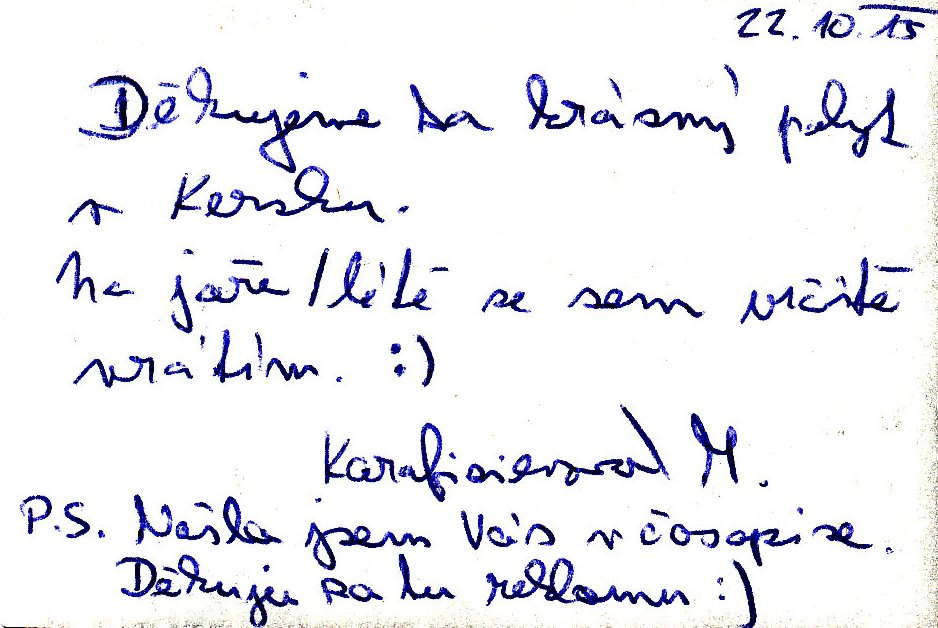 22.10.15
Děkujeme za krásný pobyt
v Kersku.
Na jaře/létě se sem určitě
vrátím. :)
M.
P.S. Našla jsem Vás v časopise.
Děkuju za tu reklamu :)